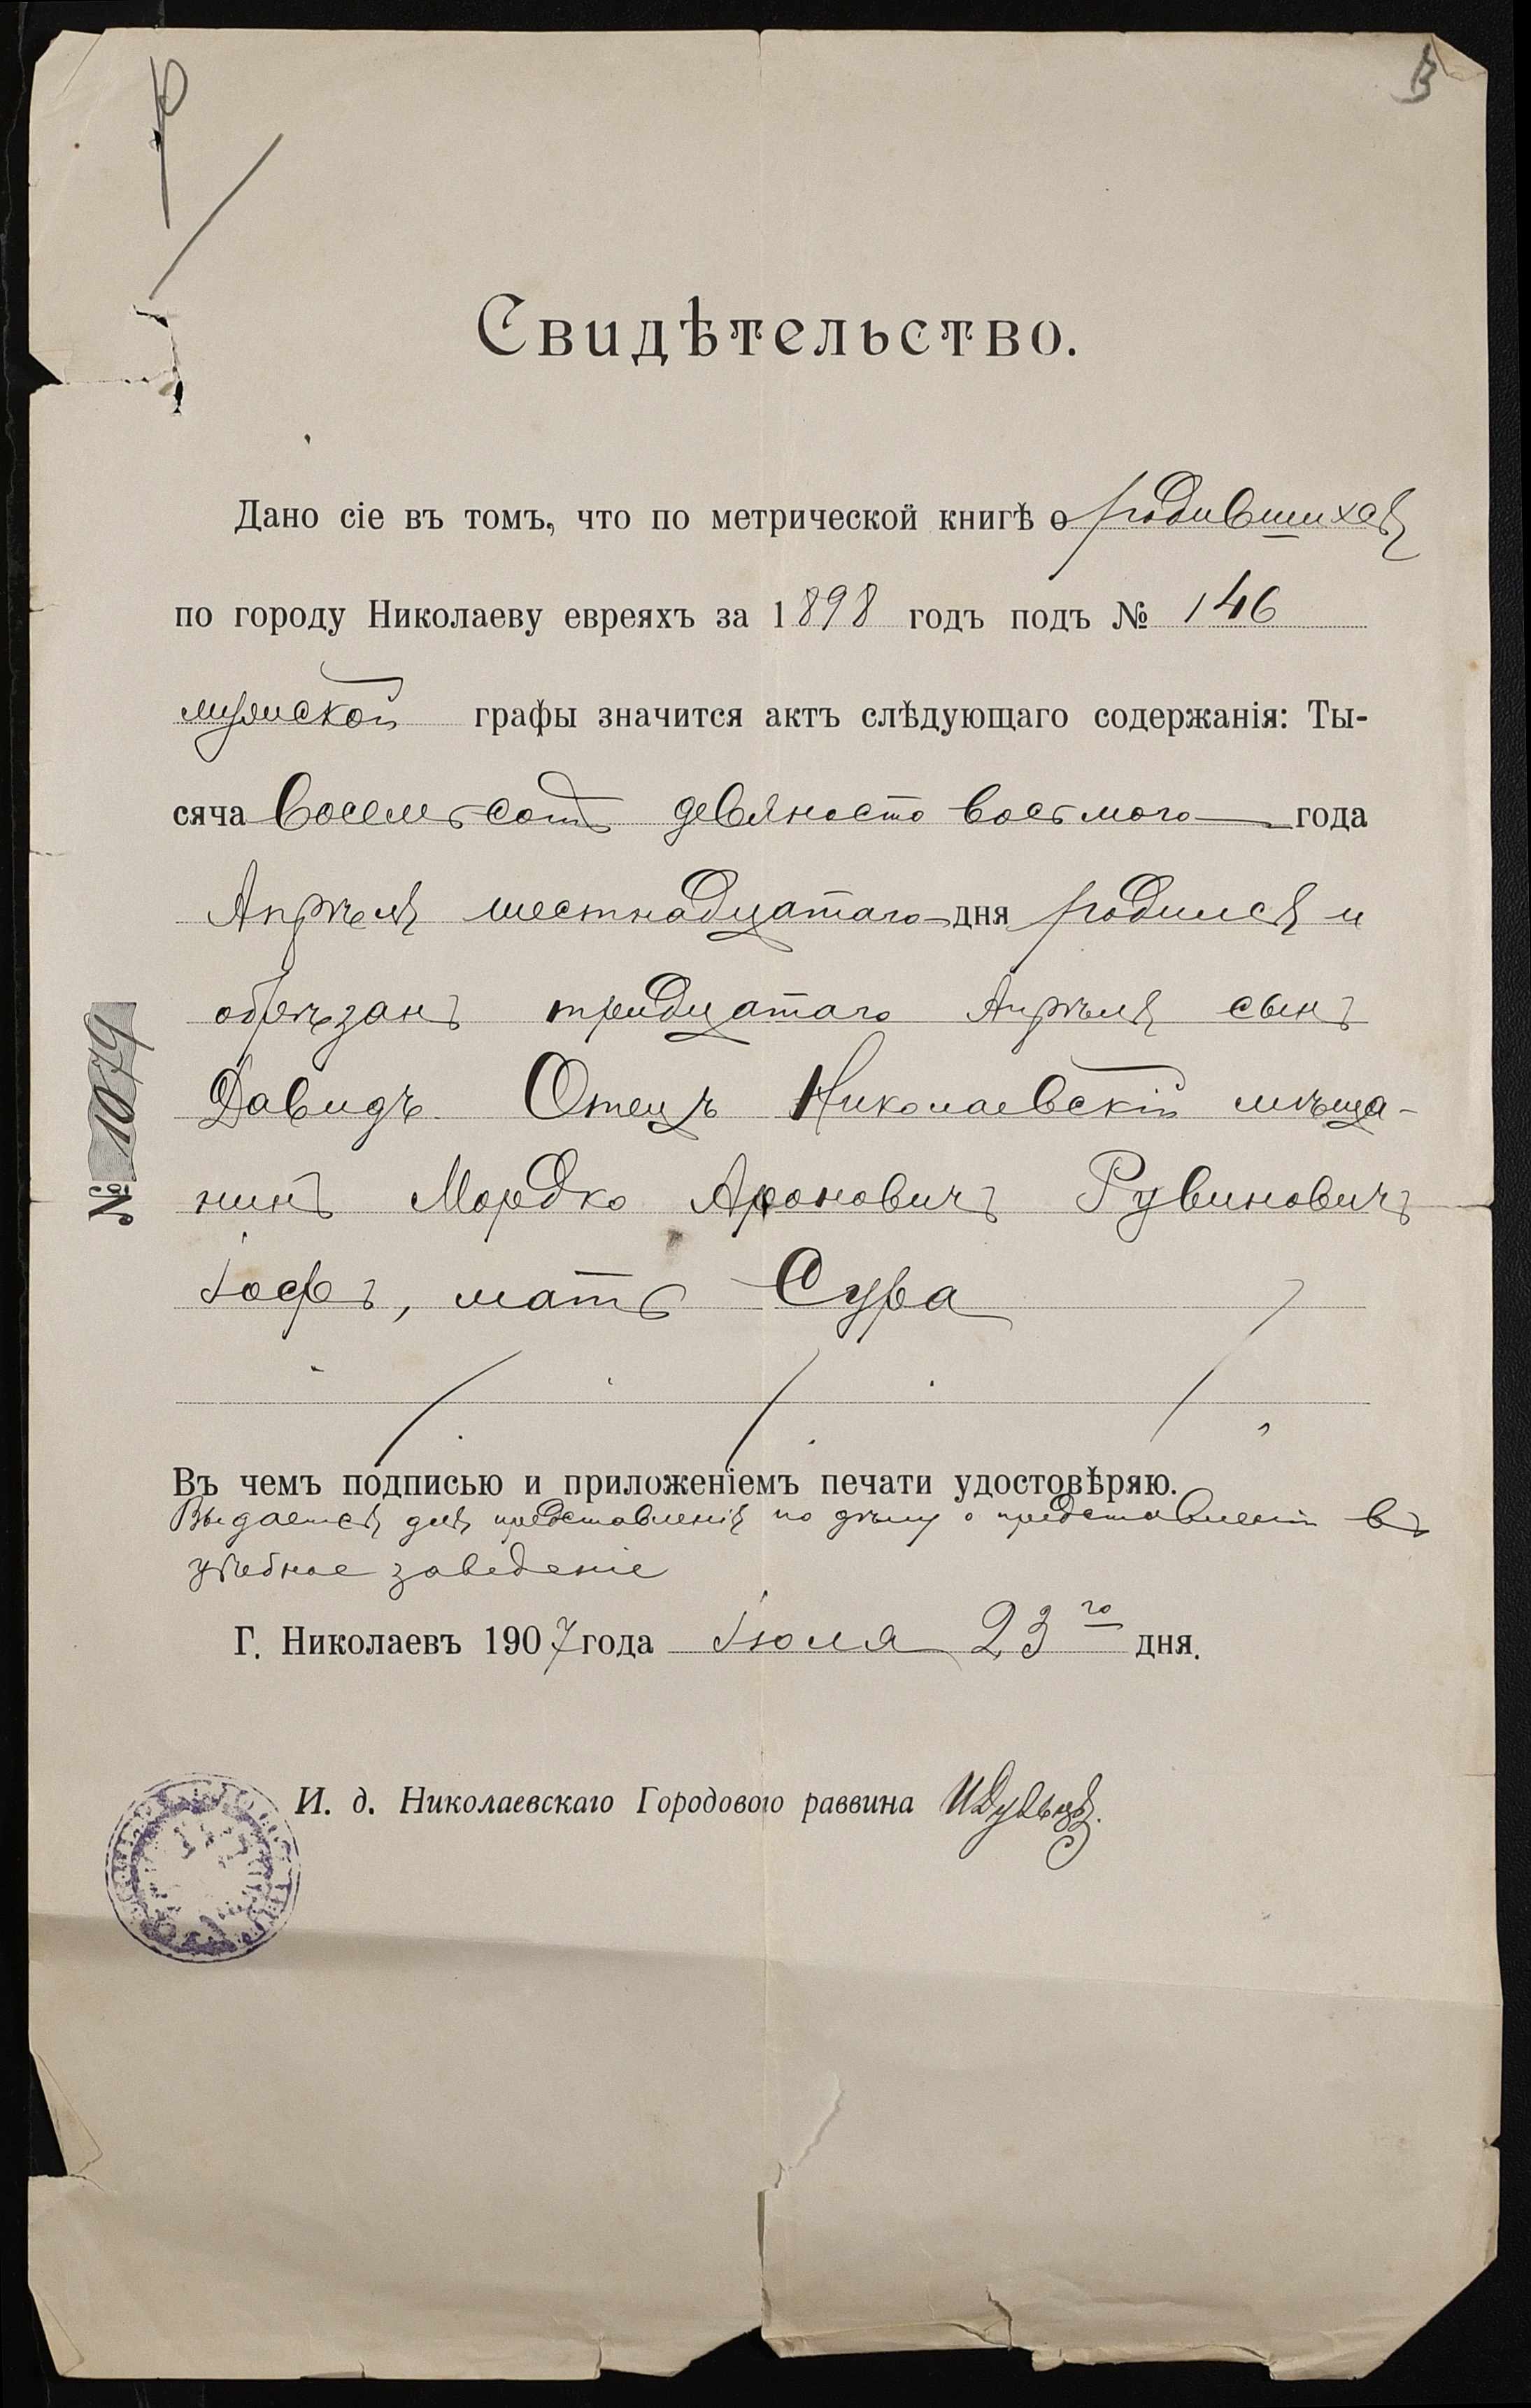 Свидѣтельство.
Дано сіе въ томъ, что по метрической книгѣ о родившихся
по городу Николаеву евреяхъ за 1898 годъ подъ № 146
мужской графы значится актъ слѣдующаго содержанія: Ты-
сяча восемьсотъ девяносто восьмого года
Апрѣля шестнадцатаго дня родился и
обрѣзанъ тридцатаго Апрѣля сынъ
Давидъ. Отецъ Николаевскій мѣща-
нинъ Мордко Ароновичъ Рувиновичъ
Іофъ, мать Сура
Въ чемъ подписью и приложеніемъ печати удостовѣряю.
Выдается для представленія по дѣлу о представленіи въ
учебное заведеніе
Г. Николаевъ 1907 года Іюля 23го дня.
И. д. Николаевскаго Городового раввина
№ 1079